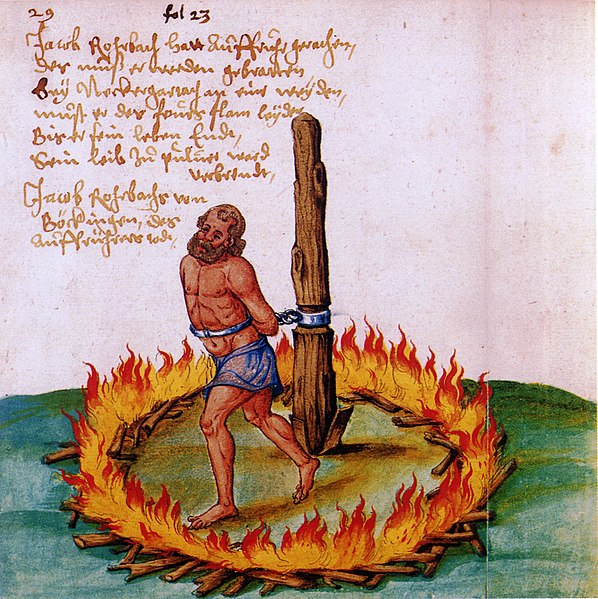 29 fol 23
Jacob Rohrbach hatt Auffruhr gerachen,
Der muß er werden gebratten
Bey Neckergartach an eine weyden,
must er des feurs flam leyden
Bis er sein leben Ende,
Sein leib Zu puluer ward
verbrendt,
Jacob Rohrbachs von
Böckingen, des
Auffrührers tode,